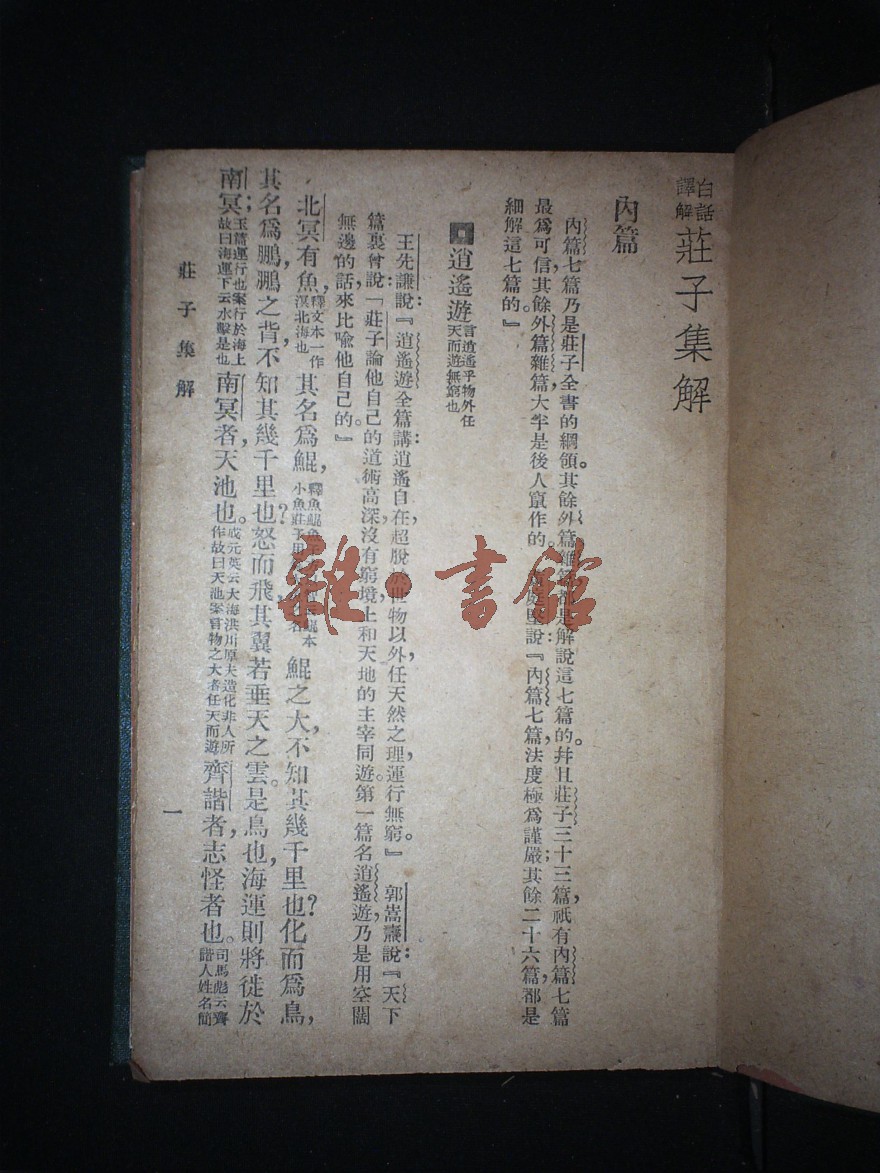 白話譯解 莊子集解
內篇
內篇七篇乃是莊子全書的綱領。其餘外篇雜篇都是解說這七篇的。幷且莊子三十三篇,祇有內篇七篇
最爲可信,其餘外篇雜篇,大半是後人竄作的。庭堅說:『內篇七篇,法度極爲謹嚴;其餘二十六篇,都是
細解這七篇的。』
逍遙遊 言逍遙乎物外任天而遊無窮也
王先謙說:『逍遙遊全篇講:逍遙自在,超脫於世物以外,任天然之理,運行無窮。』 郭嵩燾說:『天下
篇裏曾說:「莊子論他自己的道術高深,沒有窮境,上和天地的主宰同遊。第一篇名逍遙遊,乃是用空闊
無邊的話,來比喩他自己的。』
北冥有魚,釋文本一作溟北海也其名爲鯤,釋魚鯤魚小魚莊子用本鯤之大,不知其幾千里也?化而爲鳥,
其名爲鵬,鵬之背,不知其幾千里也?怒而飛,其翼若垂天之雲。是鳥也,海運則將徙於
南冥;玉篇運行也案行於海上故曰海運下云水擊是也南冥者,天池也。成元英云大海洪川原夫造化非人所作故曰天池案言物之大者任天而遊齊諧者,志怪者也。司馬彪云齊諧人姓名簡
莊子集解
一
雜·書館